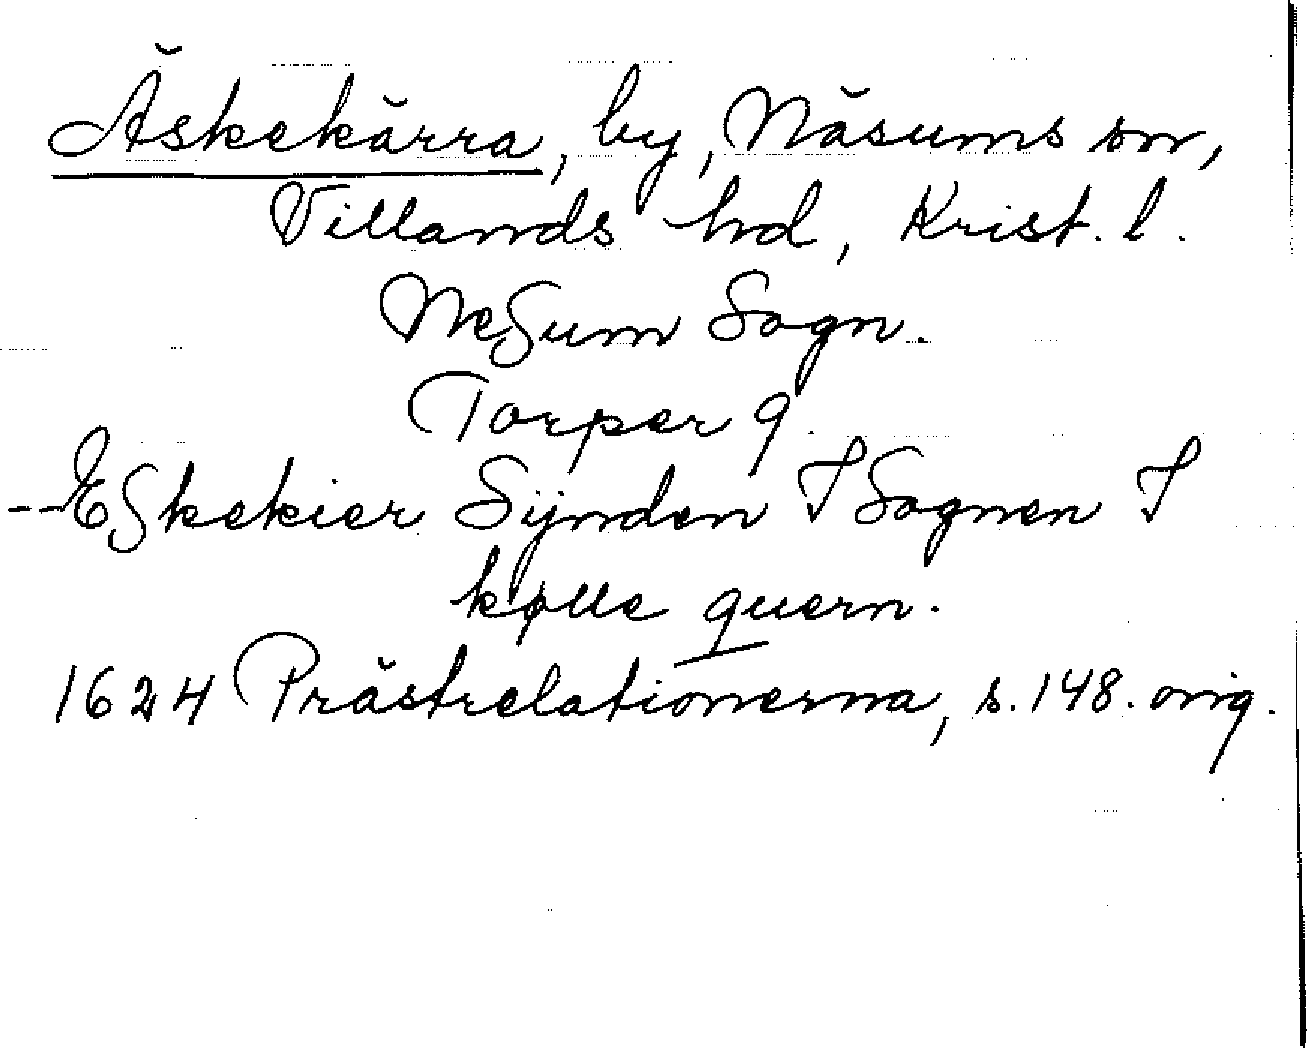 Äskekärra, by, Näsums sn,
Villands hd, Krist. l.
NeSum Sogn.
Torper 9.
--ESkekier Sÿnden I Sognen I
kølle quern.
1624 Prästrelationerna, s. 148. orig.